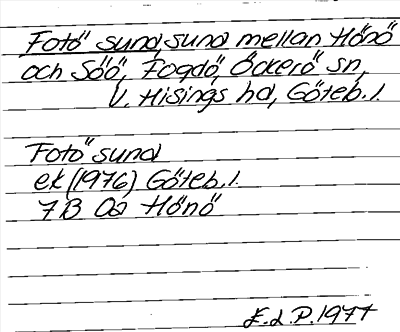 Fotö sund, sund mellan Hönö
och Söö, Fogdö, Öckerö sn,
V. Hisings hd, Göteb. l.
Fotö sund
ek (1976) Göteb. l.
7B 0a Hönö
E.L.P. 1977